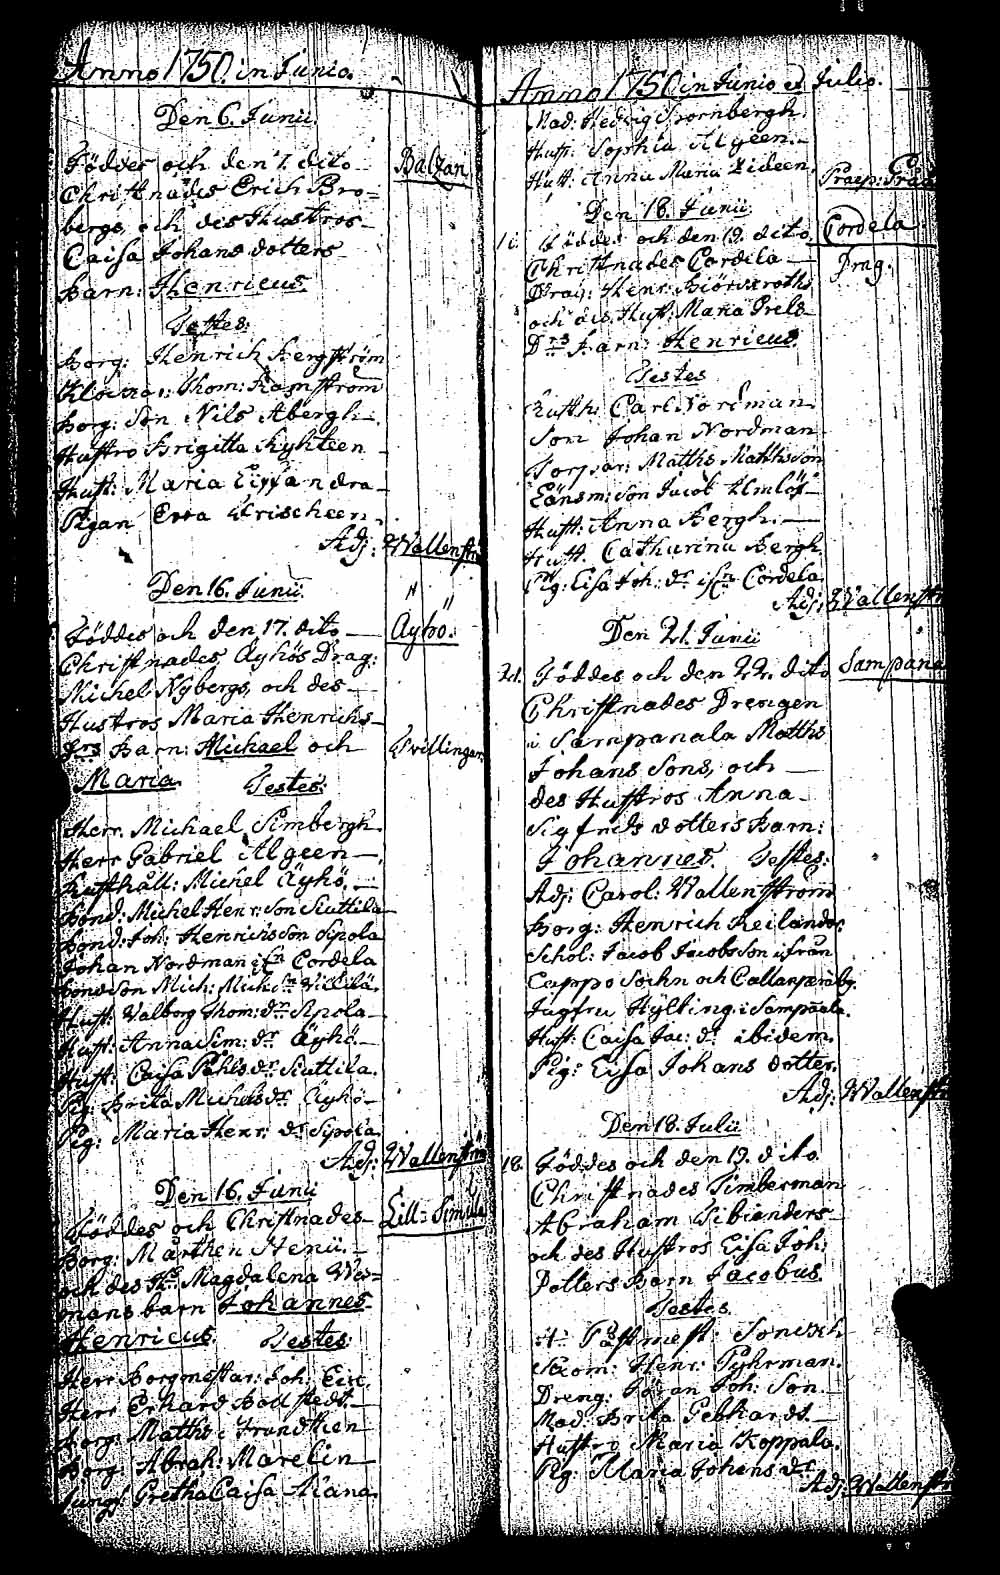 Anno 1750. in Junio.
Den 6. Junii.
Föddes och den 7. dito
Balzan
Christnades Erich Bro-
bergs och des Hustros
Caisa Johans dotters
Barn: Henricus.
Testes:
Borg: Henrich Bergström
Klockar: Thom: Ramström
Borg: Son Nils Abergh
Hustro Brigitta Kyhleen
Hust: Maria Lissandra
Pigan Eva Frischeen.
Adj: Wallenstr
Den 16. Junii
Föddes och den 17. dito
Äyhö.
Christnades Äyhös Drag:
Michel Nybergs, och des
Hustros Maria Henrichs-
drs Barn: Michael och
Tvillingar
Maria. Testes:
Herr. Michael Simbergh.
Herr Gabriel Algeen
Rusthåll: Michel Äyhö.
Bond: Michel Henr: Son Suttila
Bond: Joh: Henrichsson Sipola
Johan Nordman ifn Cordela
Bondson Mich: Mich: sn
Hust: Valborg Thom: dr Sipola
Hust: Anna Sim: dr Äyhö
Hust: Caisa Påhls dr Suttila.
Pig: Brita Michels dr Äyhö
Pig: Maria Henr: dr Sipola
Adj: Wallenström
Den 16. Junii
Föddes och Christnades
Lill-Simola
Borg: Mårthen Henii.
och des Ho Magdalena Wes-
mans barn Johannes
Henricus. Testes:
Herr Borgmästar: Joh:
Herr Erhard Bollstedt
Borg: Matths:
Borg: Abrah: Marelin
Jungf. Gretha Caisa
Anno 1750 in Junio et Julio.
Mad: Hedvig
Hust: Sophia Algeen.
Hust: Anna Maria Lideen
Praep:
Den 18. Junii
Föddes och den 19. dito
Cordela
Christnades Cordela
Drag.
Drag: Henr: Biörnroths
och des Hust: Maria Prels
Drs Barn: Henricus
Testes
Rusth: Carl Nordman
Son Johan Nordman
Torpar: Matths Matthsson
Länsm: Son Jacob
Hust: Anna Bergh.
Hust. Catharina Bergh
Pig: Lisa Joh: dr ifn Cordela
Adj: Wallenstr
Den 21. Junii
21. Föddes och den 22. dito
Sampana
Christnades Drengen
i Sampanala Matths
Johans Sons, och
des Hustros Anna
Sigfrids dotters Barn:
Johannes. Testes:
Adj: Carol: Wallenström
Borg: Henrich Reilander
Schol: Jacob Jacobsson ifrån
Cappo Sochn och Callanperä by.
Jugfru Hylting: i Sampaala.
Hust: Caisa Jac: dr ibidem.
Pig: Lisa Johans dotter.
Adj: Wallenstr
Den 18. Julii
18. Föddes och den 19. dito
Christnades Timberman
Abraham Sibianders
och des Hustros Lisa Joh:
Dotters Barn Jacobus.
Testes.
Hr Påstmest:
Henr: Pyhrman.
Dreng: Johan Joh: Son.
Mad: Brita Gebhardt
Hustro Maria Koppala.
Pig: Maria Johans dr
Adj: Wallenstr